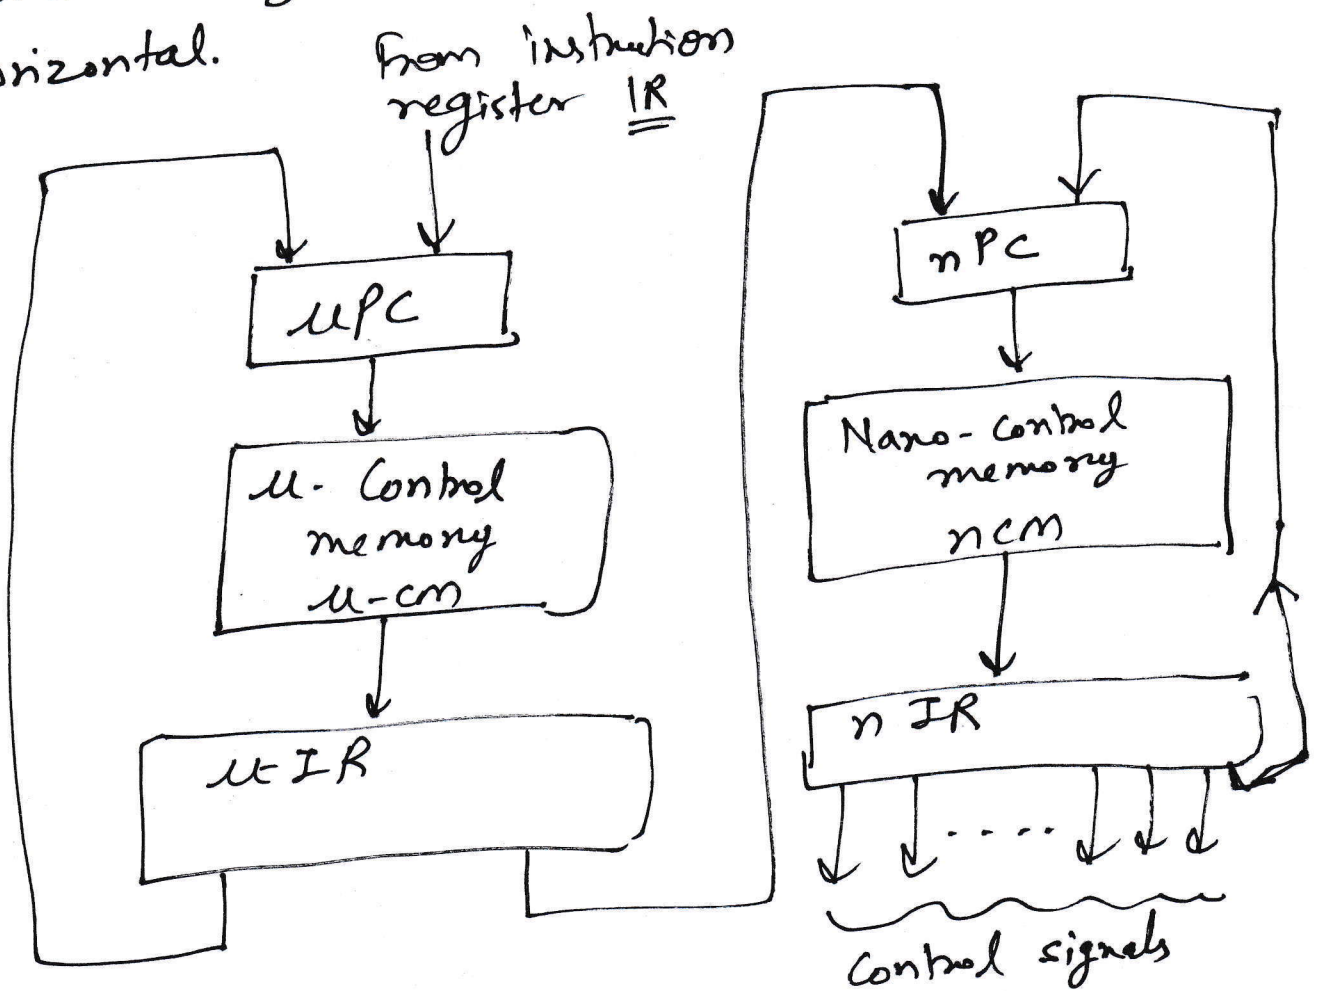 horizontal.
From instruction
register IR
μPC
μ- Control
memory
μ-CM
μIR
nPC
Nano-control
memory
nCM
nIR
.....
Control signals